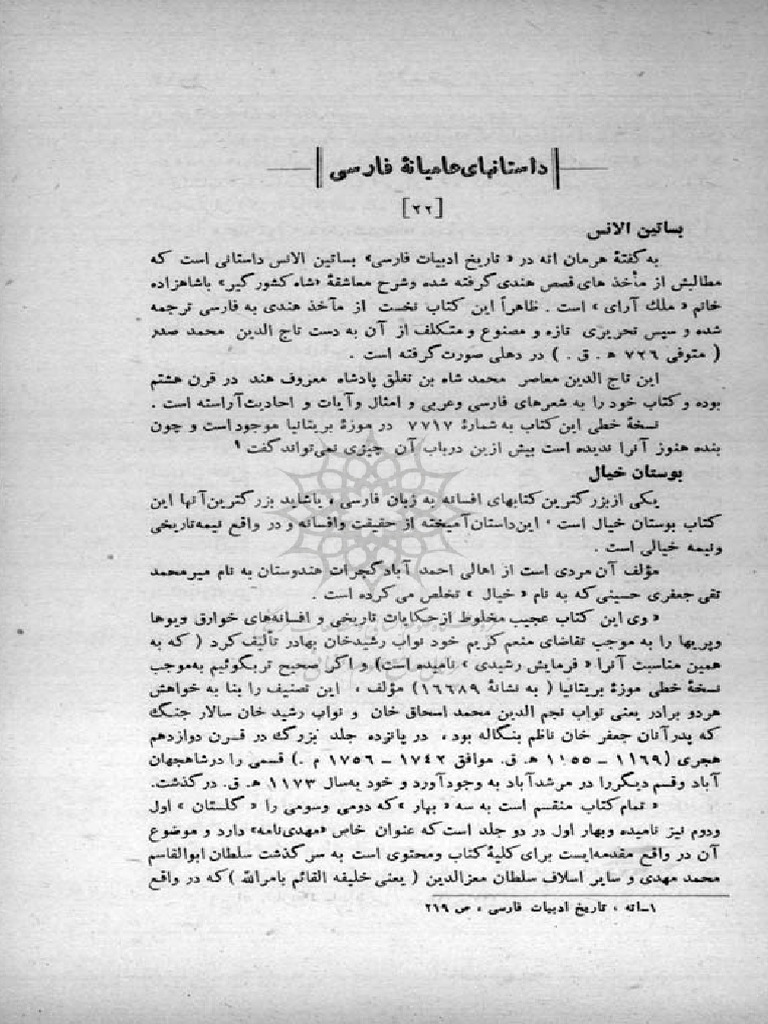 داستانهای عامیانهٔ فارسی
[۲۲]
بساتین الانس
به گفتهٔ هرمان اته در «تاریخ ادبیات فارسی» بساتین الانس داستانی است که
مطالبش از مأخذ های قصص هندی گرفته شده وشرح معاشقهٔ «شاه کشور گیر» باشاهزاده
خانم «ملك آرای» است . ظاهراً این کتاب نخست از مآخذ هندی به فارسی ترجمه
شده و سپس تحریری تازه و مصنوع و متکلف از آن به دست تاج الدین محمد صدر
( متوفی ۷۲۶ هـ . ق . ) در دهلی صورت گرفته است .
این تاج الدین معاصر محمد شاه بن تغلق پادشاه معروف هند در قرن هشتم
بوده و کتاب خود را به شعرهای فارسی وعربی و امثال و آیات و احادیث آراسته است .
نسخهٔ خطی این کتاب به شمارهٔ ۷۷۱۷ در موزهٔ بریتانیا موجود است و چون
بنده هنوز آنرا ندیده است بیش ازین درباب آن چیزی نمی‌تواند گفت ۱
بوستان خیال
یکی از بزرگترین کتابهای افسانه به زبان فارسی ، یاشاید بزرگترین آنها این
کتاب بوستان خیال است . این داستان آمیخته از حقیقت وافسانه و در واقع نیمه تاریخی
ونیمه خیالی است .
مؤلف آن مردی است از اهالی احمد آباد گجرات هندوستان به نام میر محمد
تقی جعفری حسینی که به نام « خیال » تخلص می کرده است .
«وی این کتاب عجیب مخلوط از حکایات تاریخی و افسانه‌های خوارق ودیوها
وپریها را به موجب تقاضای منعم کریم خود نواب رشیدخان بهادر تألیف کرد ( که به
همین مناسبت آنرا «فرمایش رشیدی» نامیده است) و اگر صحیح تر بگوئیم به‌موجب
نسخهٔ خطی موزهٔ بریتانیا ( به نشانهٔ ۱۶۶۸۹) مؤلف ، این تصنیف را بنا به خواهش
هردو برادر یعنی نواب نجم الدین محمد اسحاق خان و نواب رشید خان سالار جنگ
که پدر آنان جعفر خان ناظم بنگاله بود ، در پانزده جلد بزرگ در قرن دوازدهم
هجری (۱۱۶۹ – ۱۱۵۵ هـ . ق. موافق ۱۷۴۲ – ۱۷۵۶ م .) قسمی را درشاهجهان
آباد وقسم دیگر را در مرشدآباد به وجود آورد و خود به‌سال ۱۱۷۳ هـ . ق. درگذشت.
« تمام کتاب منقسم است به سه «بهار» که دومی وسومی را «گلستان» اول
ودوم نیز نامیده وبهار اول در دو جلد است که عنوان خاص «مهدی‌نامه» دارد و موضوع
آن در واقع مقدمه‌ایست برای کلیهٔ کتاب ومحتوی است به سر گذشت سلطان ابوالقاسم
محمد مهدی و سایر اسلاف سلطان معزالدین ( یعنی خلیفه القائم بامرالله ) که در واقع
۱–اته ، تاریخ ادبیات فارسی ، ص ۲۱۹